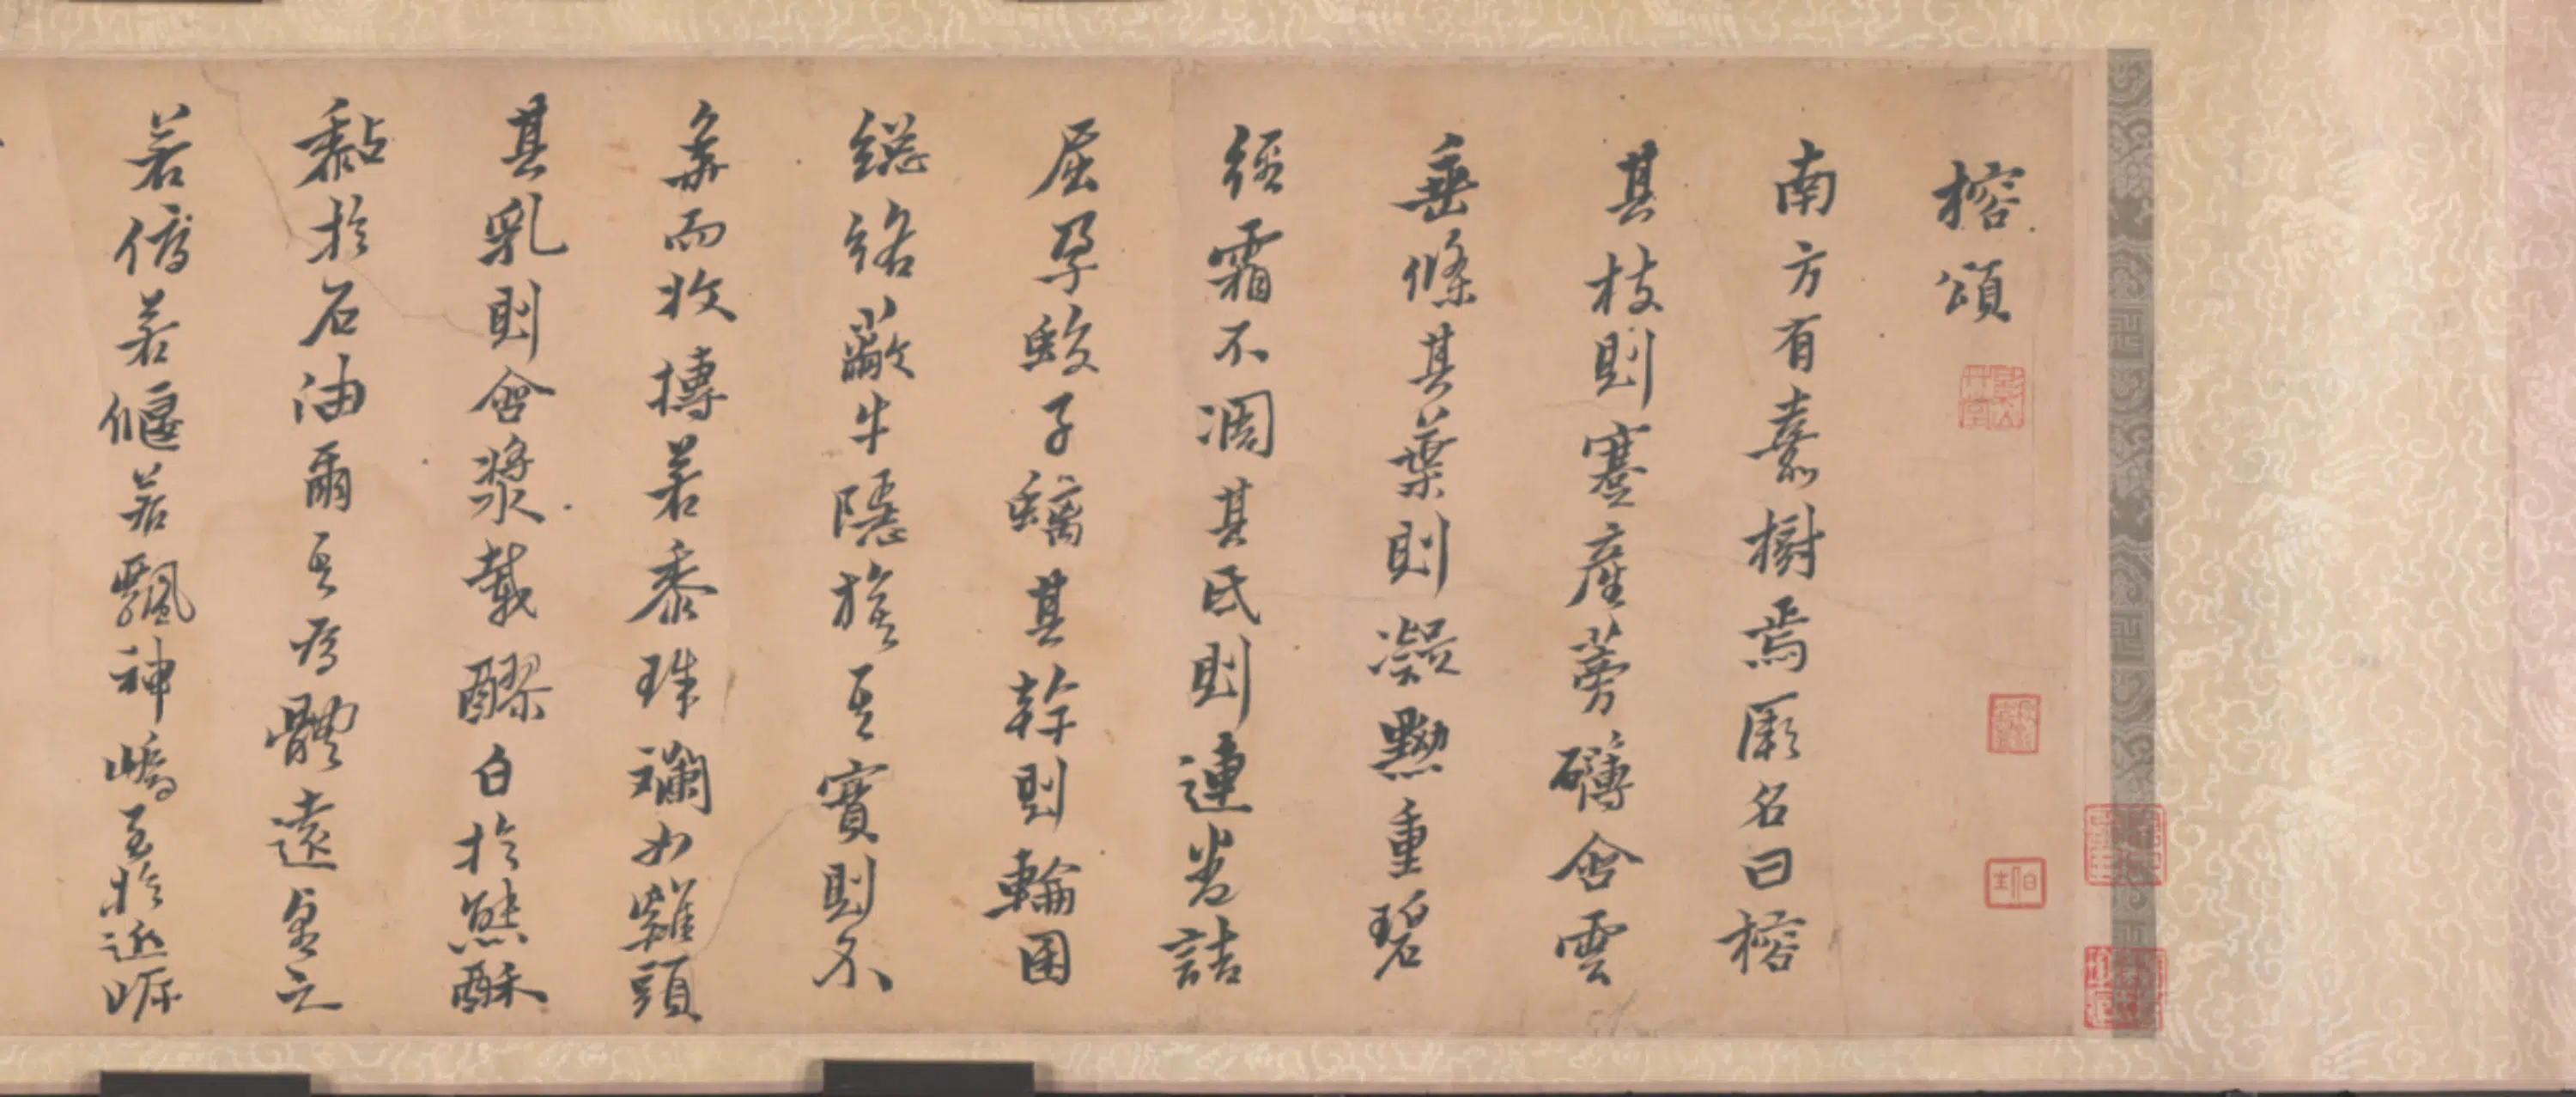 榕頌
南方有嘉樹焉厥名曰榕
其枝則蹇產旁礴含雲
垂條其葉則凝黝重碧
經霜不凋其氐則連卷詰
屈孕蛟子螭其幹則輪囷
總絡蔽牛隱旅其實則不
而收摶若黍珠斕如雞頭
其乳則含漿載醪白於熊酥
黏於石油爾其為體遠
若傴若偃若飄神嶠至於近